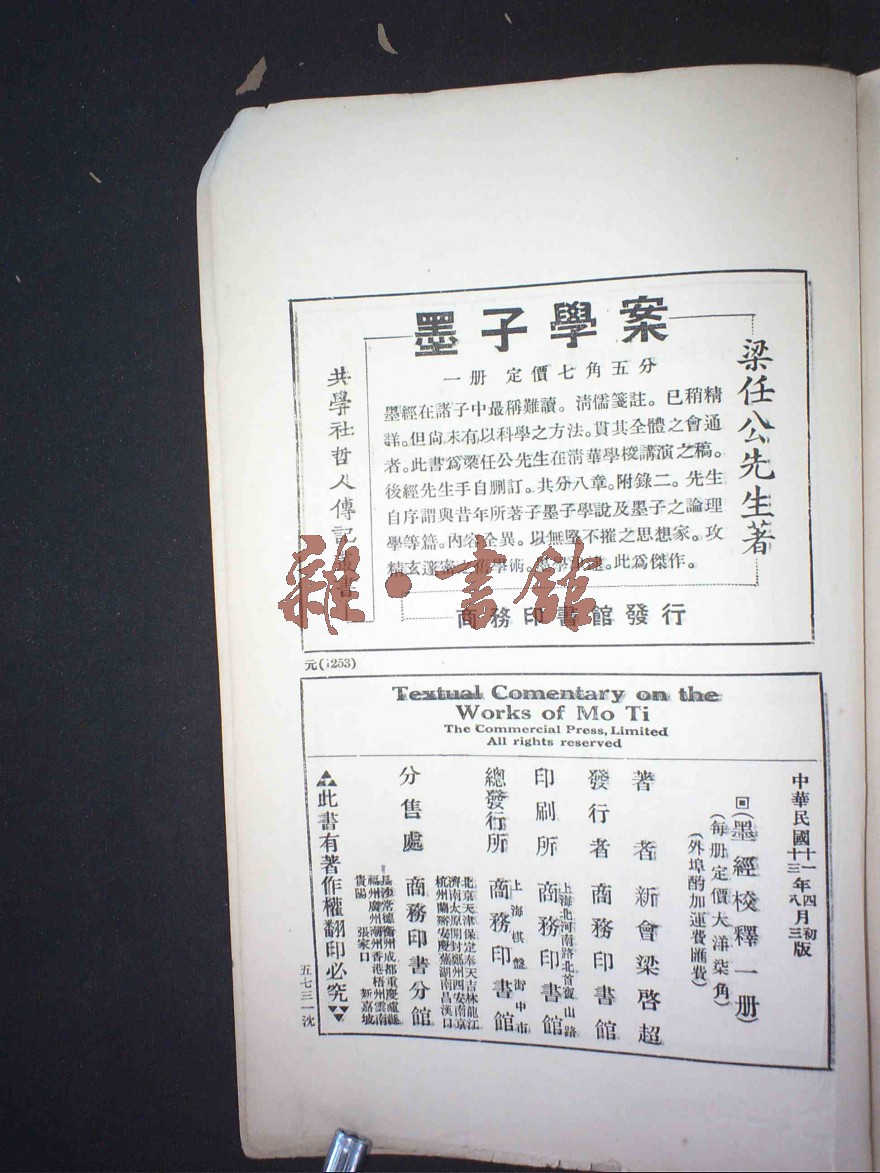 梁任公先生著
墨子學案
一册 定價七角五分
墨經在諸子中最稱難讀。淸儒箋註。已稍精
詳。但尙未有以科學之方法。貫其全體之會通
者。此書爲梁任公先生在清華學校講演之稿。
後經先生手自刪訂。共分八章。附錄二。先生
自序謂與昔年所著子墨子學說及墨子之論理
學等篇。內容全異。以無堅不摧之思想家。攻
精玄邃密之 學術。 此爲傑作。
共學社哲人傳記叢書
商務印書館發行
雜·書館
元(1253)
Textual Comentary on the
Works of Mo Ti
The Commercial Press, Limited
All rights reserved
中華民國十一年四月初版
十三年八月三版
(墨經校釋一册)
(每册定價大洋柒角)
(外埠酌加運費匯費)
著者 新會梁啓超
發行者 商務印書館
印刷所 上海北河南路北首寶山路 商務印書館
總發行所 上海棋盤街中市 商務印書館
分售處 商務印書分館
北京天津保定奉天吉林龍江
濟南太原開封鄭州西安南京
杭州蘭谿安慶蕪湖南昌漢口
長沙常德衡州成都重慶瀘縣
福州廣州潮州香港梧州雲南
貴陽 張家口 新嘉坡
此書有著作權翻印必究
五七三一沈